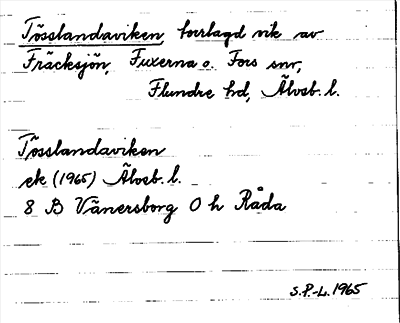 Tösslandaviken, torrlagd vik av
Fräcksjön, Fuxerna o. Fors snr,
Flundre hd, Älvsb. l.
Tösslandaviken
ek (1965) Älvsb. l.
8 B Vänersborg O h Råda
S.P.-L. 1965